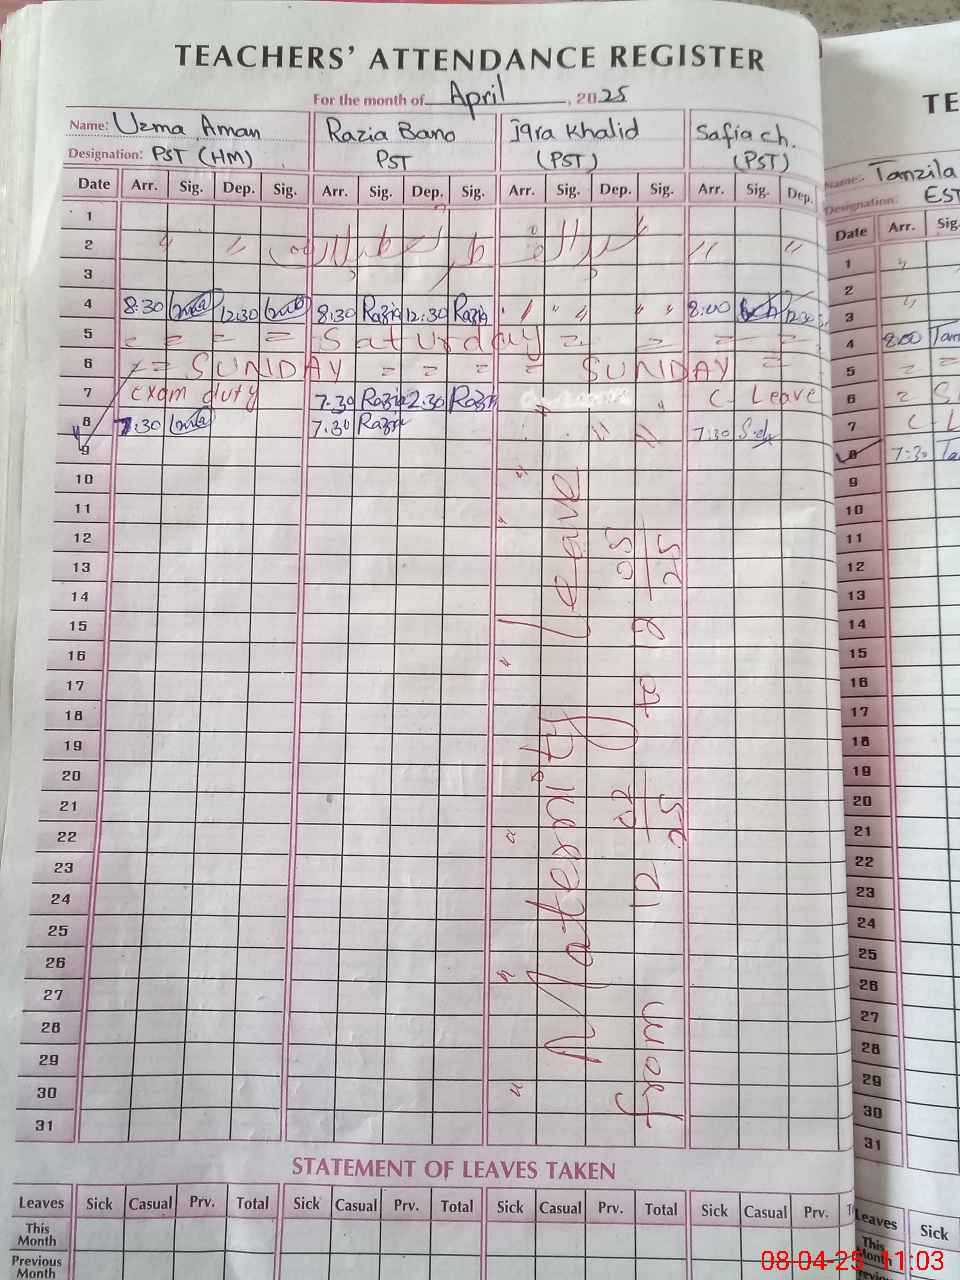 TEACHERS' ATTENDANCE REGISTER
For the month of April, 2025
Name: Uzma Aman Razia Bano Iqra Khalid Safia ch.
Designation: PST (HM) PST (PST) (PST)
Date Arr. Sig. Dep. Sig. Arr. Sig. Dep. Sig. Arr. Sig. Dep. Sig. Arr. Sig. Dep.
1
2
3
4 8:30 12:30 8:30 Razia 12:30 Razia 8:00 12:30
5 = = = = Saturday = = = =
6 = = SUNDAY = = = = SUNDAY =
7 exam duty 7.30 Razia 2.30 Razia C. Leave
8 7.30 7.30 Razia 7:30
9
10
11
12
13
14
15
16
17
18
19
20
21
22
23
24
25
26
27
28
29
30
31
Maternity leave
from 12 02 25 to 12 05 25
STATEMENT OF LEAVES TAKEN
Leaves Sick Casual Prv. Total Sick Casual Prv. Total Sick Casual Prv. Total Sick Casual Prv.
This Month
Previous Month
TE
Name: Tanzila
Designation: EST
Date Arr. Sig.
1
2
3
4 8:00 Tan
5 = =
6 = S
7 C. L
8 7:30 Ta
9
10
11
12
13
14
15
16
17
18
19
20
21
22
23
24
25
26
27
28
29
30
31
Leaves Sick
This Month
08-04-25 11:03